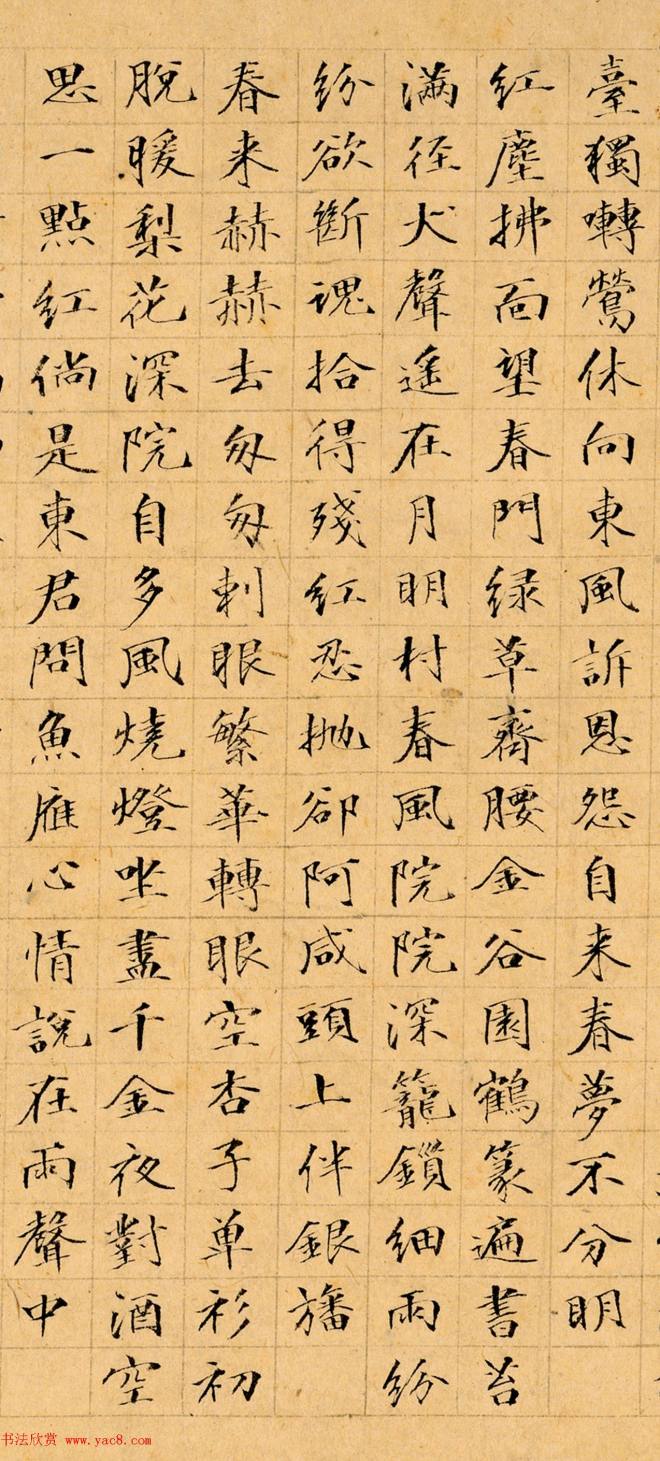 臺獨囀鶯休向東風訴恩怨自来春夢不分明
紅塵拂面望春門緑草齊腰金谷園鶴篆遍書苔
滿径犬聲遙在月明村春風院院深籠鎖細雨紛
紛欲斷魂拾得殘紅忍抛卻阿咸頭上伴銀旛
春来赫赫去匆匆刺眼繁華轉眼空杏子单衫初
脫暖梨花深院自多風燒燈坐盡千金夜對酒空
思一點紅倘是東君問魚雁心情說在雨聲中
书法欣赏 www.yac8.com